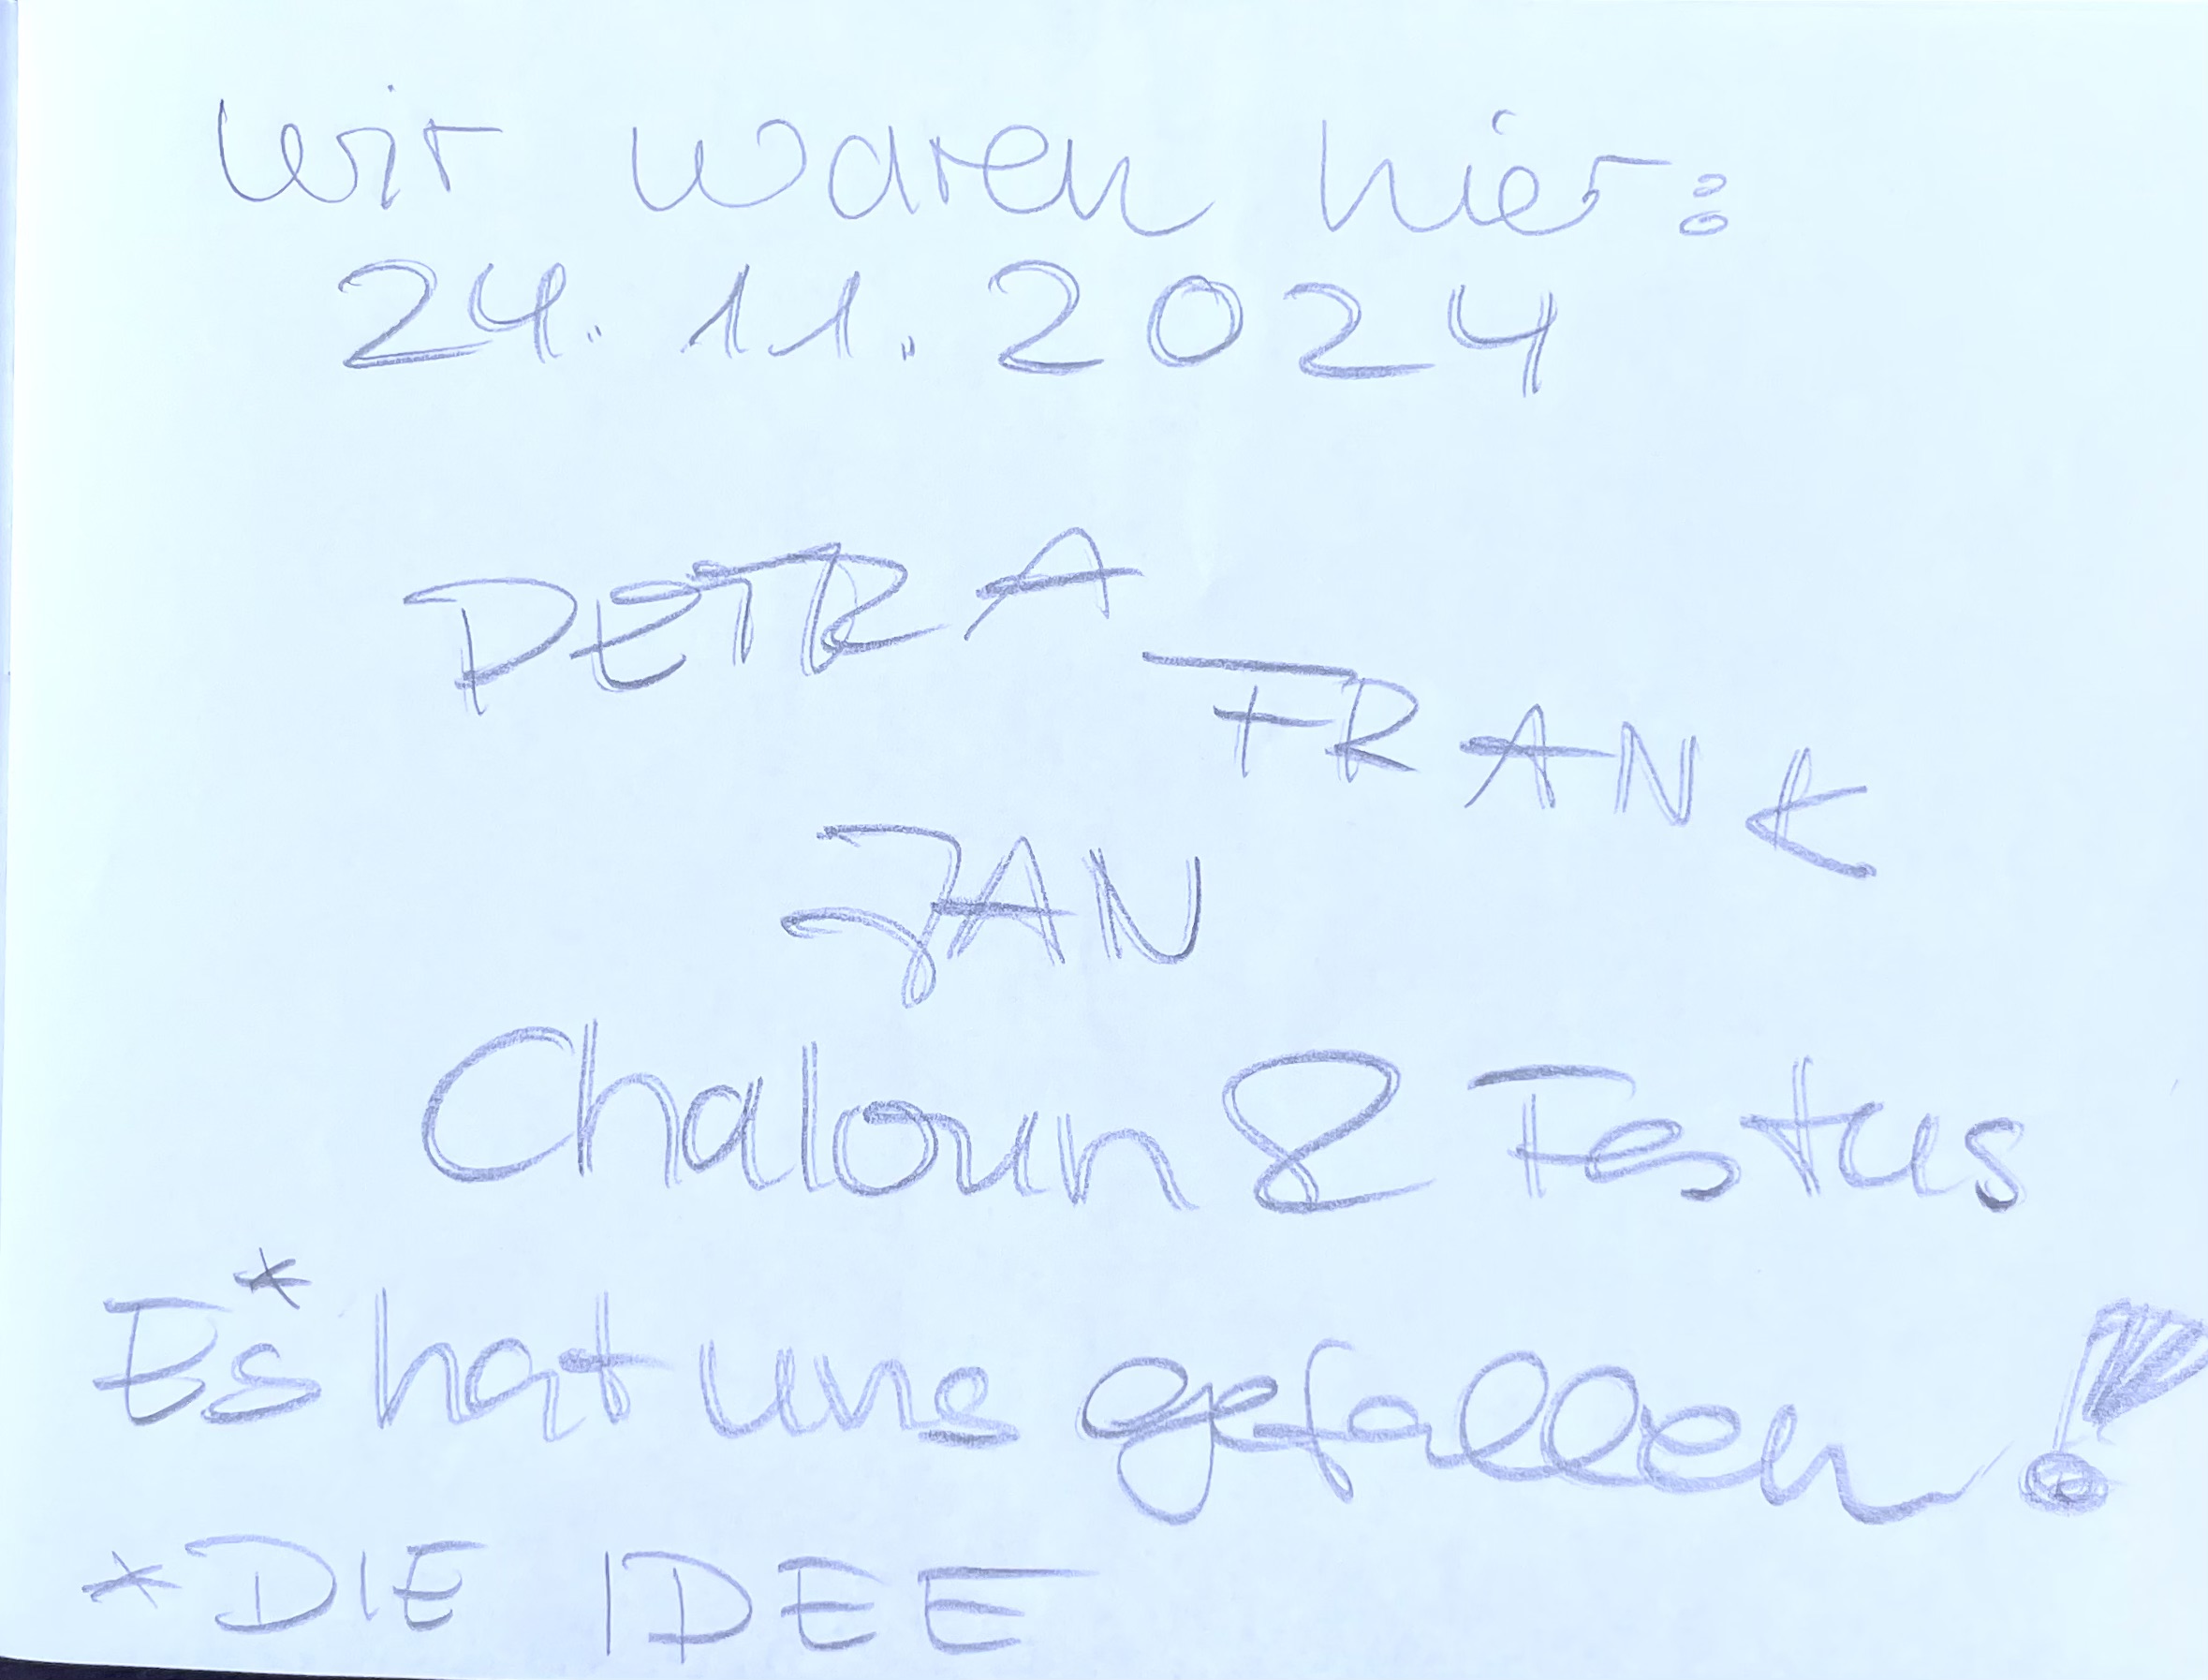 Wir waren hier:
24.11.2024
PETRA
FRANK
JAN
Chaloun & Festus
Es* hat uns gefallen!
*DIE IDEE